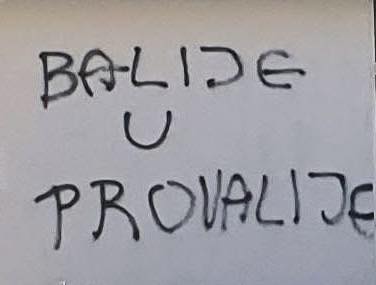 BALIJE
U
PROVALIJE